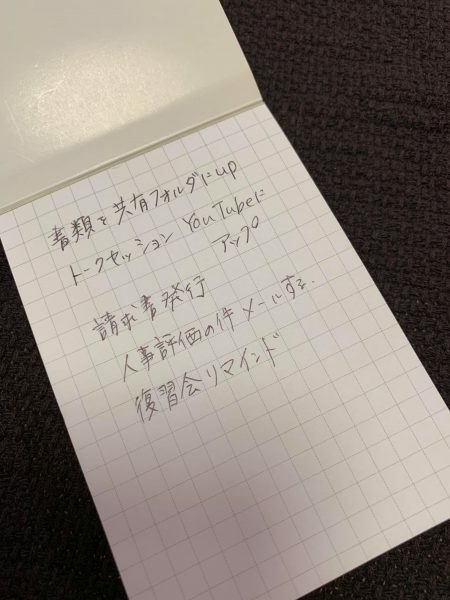 書類を共有フォルダにup
トークセッション YouTubeに
アップ
請求書発行
人事評価の件メールする.
復習会リマインド